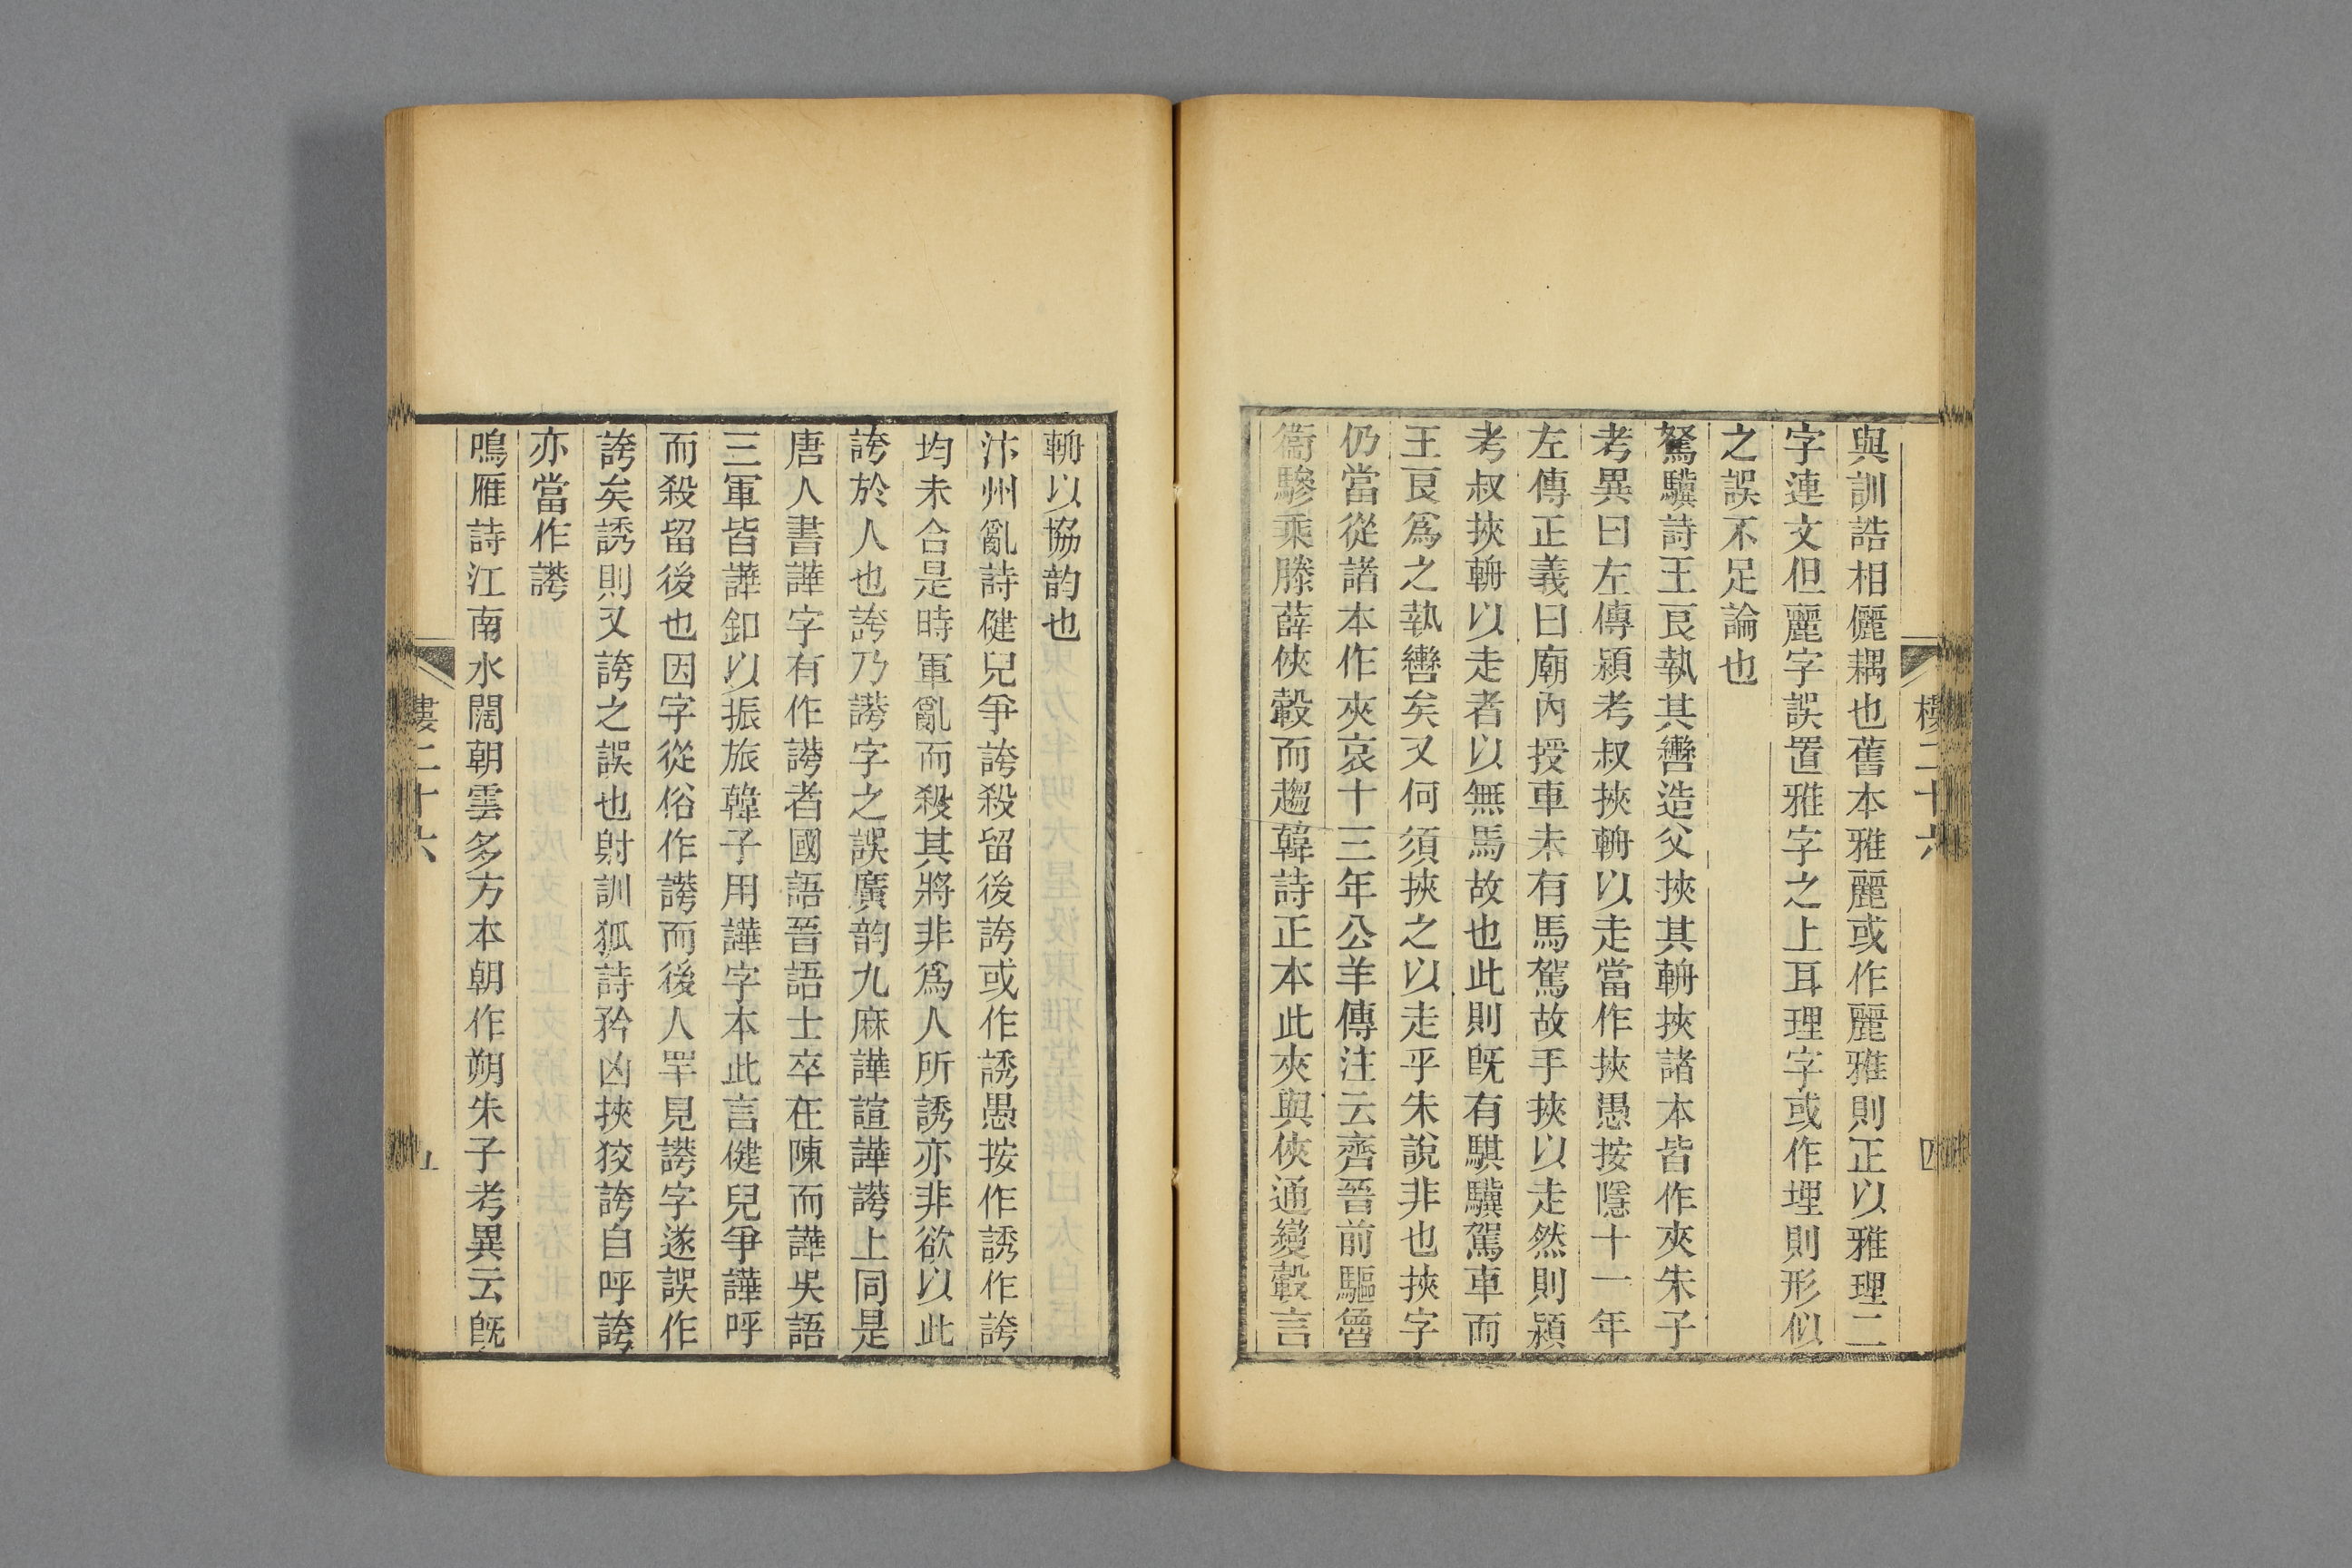 與訓誥相儷耦也舊本雅麗或作麗雅則正以雅理二
字連文但麗字誤置雅字之上耳理字或作埋則形似
之誤不足論也
駑驥詩王良執其轡造父挾其輈挾諸本皆作夾朱子
考異曰左傳潁考叔挾輈以走當作挾愚按隱十一年
左傳正義曰廟內授車未有馬駕故手挾以走然則潁
考叔挾輈以走者以無馬故也此則旣有騏驥駕車而
王良爲之執轡矣又何須挾之以走乎朱說非也挾字
仍當從諸本作夾哀十三年公羊傳注云齊晉前驅魯
衞驂乘滕薛俠轂而趨韓詩正本此夾與俠通變轂言
樓二十六
四
輈以協韵也
汴州亂詩健兒爭誇殺留後誇或作誘愚按作誘作誇
均未合是時軍亂而殺其將非爲人所誘亦非欲以此
誇於人也誇乃譁字之誤廣韵九麻譁諠譁䛻上同是
唐人書譁字有作䛻者國語晉語士卒在陳而譁吳語
三軍皆譁釦以振旅韓子用譁字本此言健兒爭譁呼
而殺留後也因字從俗作䛻而後人罕見䛻字遂誤作
誇矣誘則又誇之誤也射訓狐詩矜凶挾狡誇自呼誇
亦當作䛻
鳴雁詩江南水闊朝雲多方本朝作朔朱子考異云旣
樓二十六